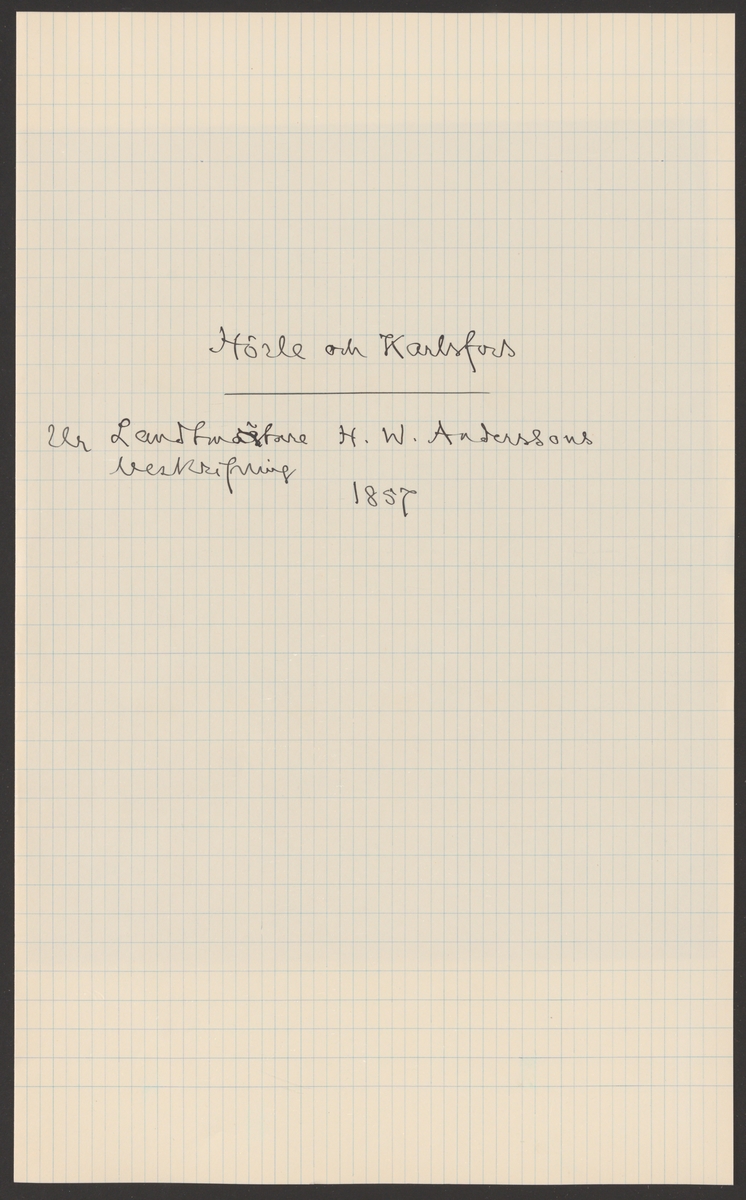 Hörle och Karlsfors
Ur Landtmätare H. W. Anderssons
beskrifning
1857